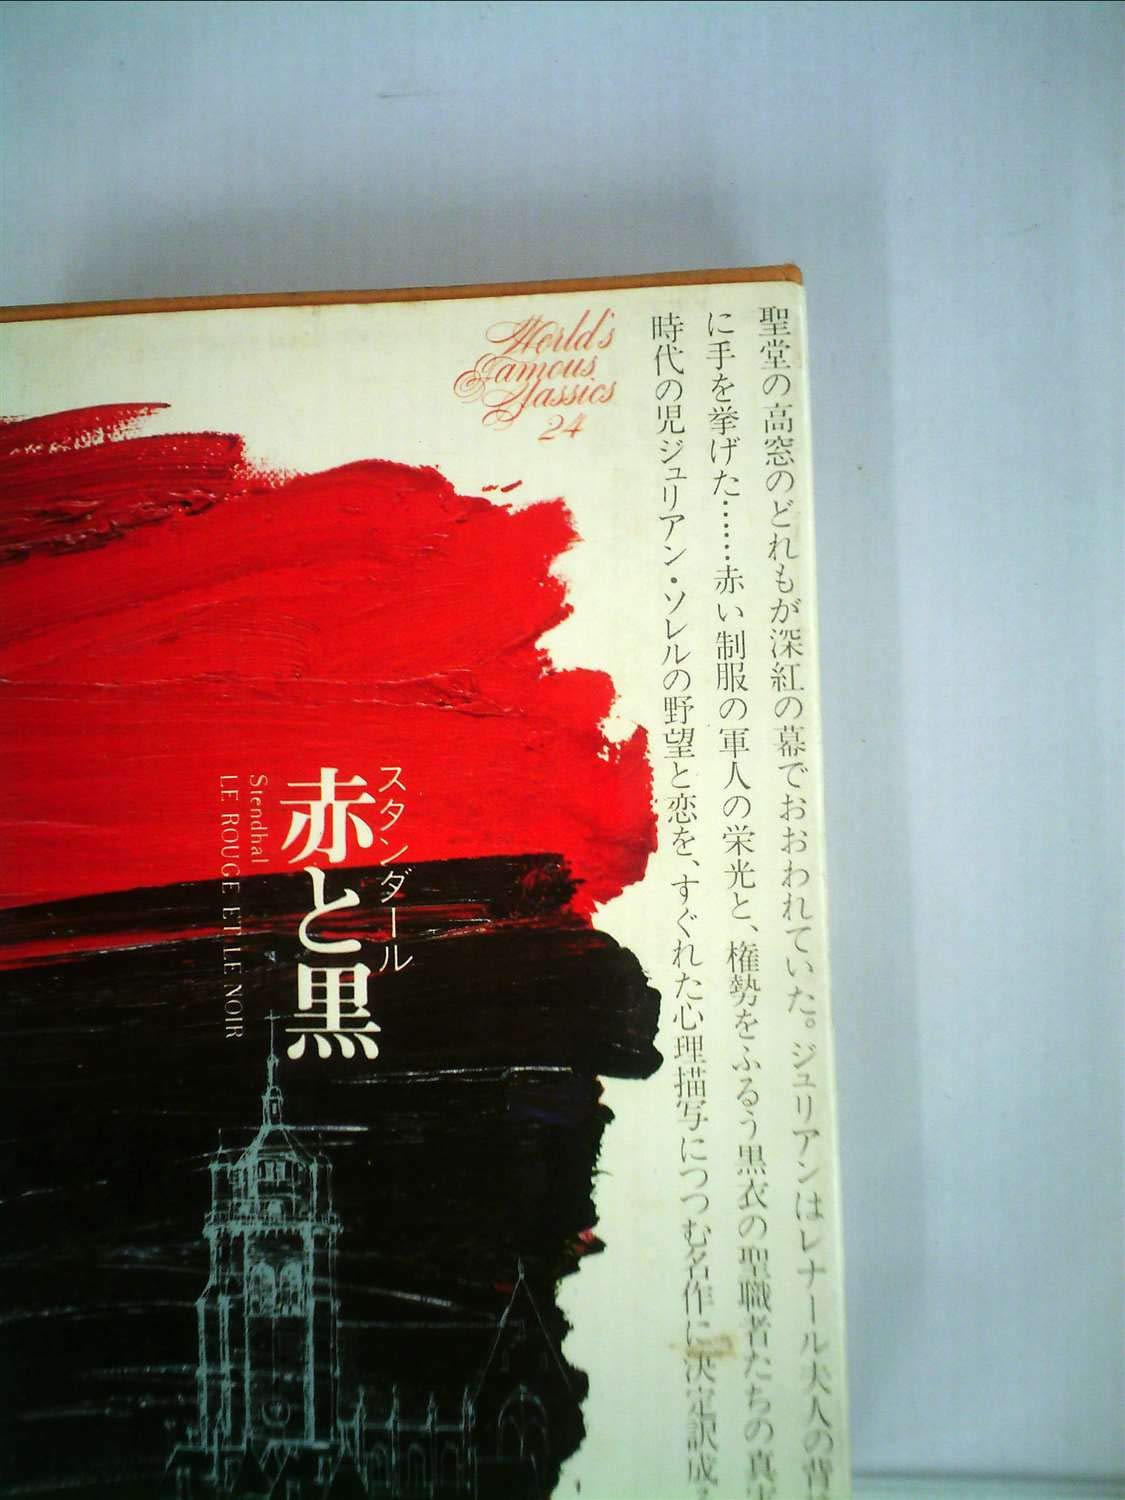 World's
Famous
Classics
24
聖堂の高窓のどれもが深紅の幕でおおわれていた。ジュリアンはレナール夫人の背
に手を挙げた……赤い制服の軍人の栄光と、権勢をふるう黒衣の聖職者たちの真実
時代の児ジュリアン・ソレルの野望と恋を、すぐれた心理描写につつむ名作に決定訳成
スタンダール
赤と黒
Stendhal
LE ROUGE ET LE NOIR